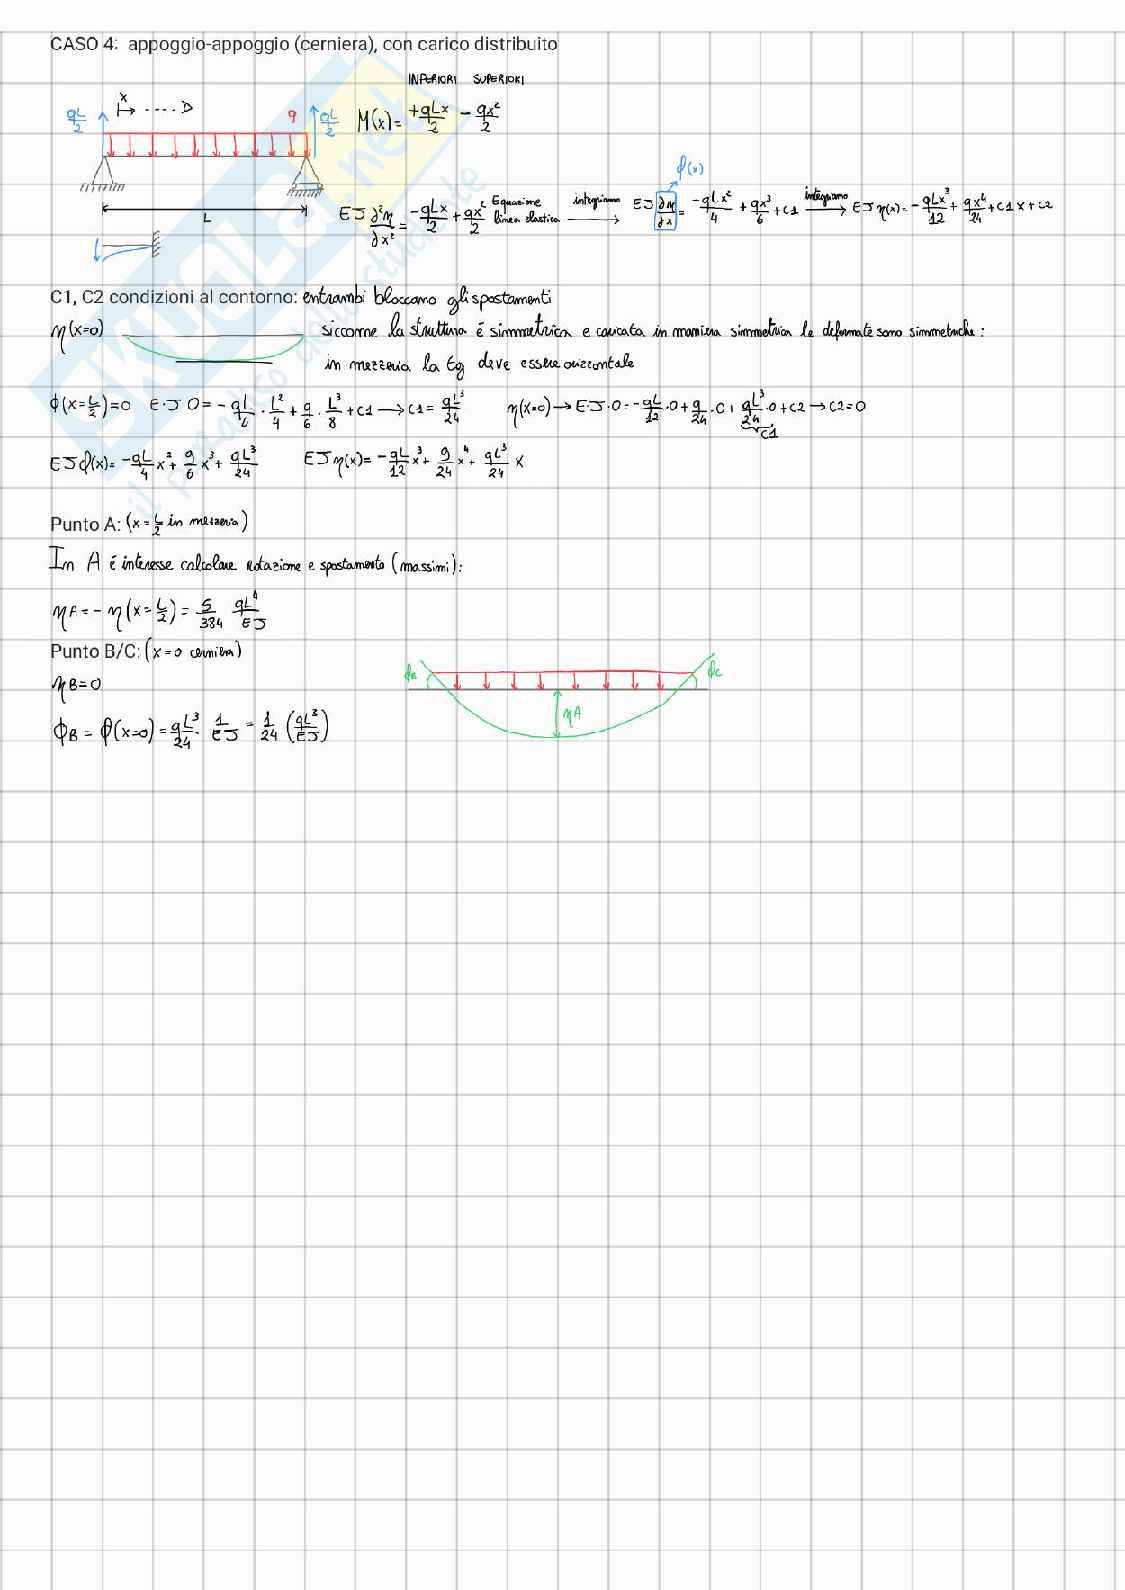 CASO 4: appoggio-appoggio (cerniera), con carico distribuito
INFERIORI SUPERIORI
x
qL/2
q
qL/2
M(x)= +qLx/2 - qx²/2
L
ϕ(x)
EJ ∂²η/∂x² = -qLx/2 + qx²/2 Equazione linea elastica integriamo → EJ ∂η/∂x = -qLx²/4 + qx³/6 + C1 integriamo → EJη(x)= -qLx³/12 + qx⁴/24 + C1x + C2
C1, C2 condizioni al contorno: entrambi bloccano gli spostamenti
η(x=0) siccome la struttura è simmetrica e caricata in maniera simmetrica le deformate sono simmetriche:
in mezzeria la tg deve essere orizzontale
ϕ(x=L/2)=0 E·J 0= -qL/4 · L²/4 + q/6 · L³/8 + C1 → C1= qL³/24 η(x=0) → E·J·0 = -qL/12·0 + q/24·0 + qL³/24·0 + C2 → C2=0
C1
EJϕ(x)= -qL/4 x² + q/6 x³ + qL³/24 EJη(x)= -qL/12 x³ + q/24 x⁴ + qL³/24 x
Punto A: (x=L/2 in mezzeria)
In A è interesse calcolare rotazione e spostamento (massimi):
ηA = -η(x=L/2) = 5/384 qL⁴/EJ
Punto B/C: (x=0 cerniera)
ηB=0
ϕB = ϕ(x=0) = qL³/24 · 1/EJ = 1/24 (qL³/EJ)
ϕB
ϕC
ηA
SKUOLA.net
il paradiso dello studente